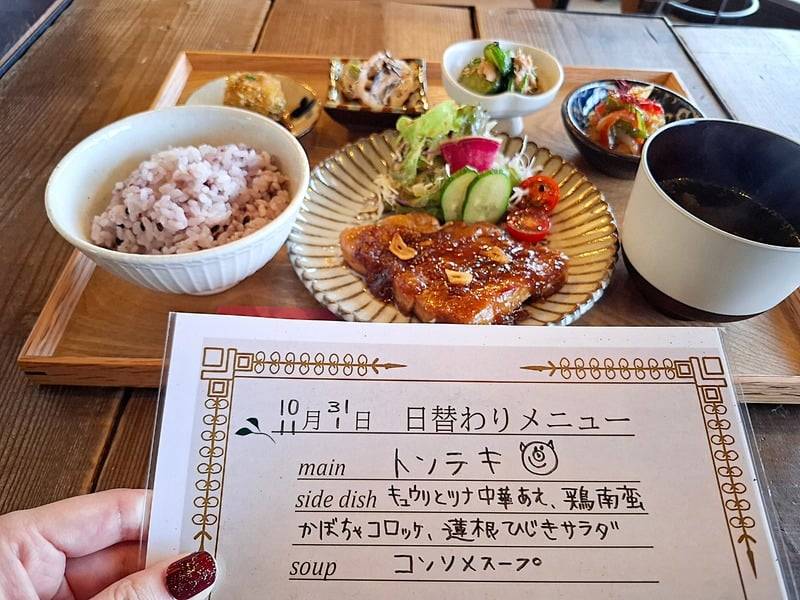 10月31日 日替わりメニュー
11 1
main トンテキ
side dish キュウリとツナ中華あえ、鶏南蛮
かぼちゃコロッケ、蓮根ひじきサラダ
soup コンソメスープ